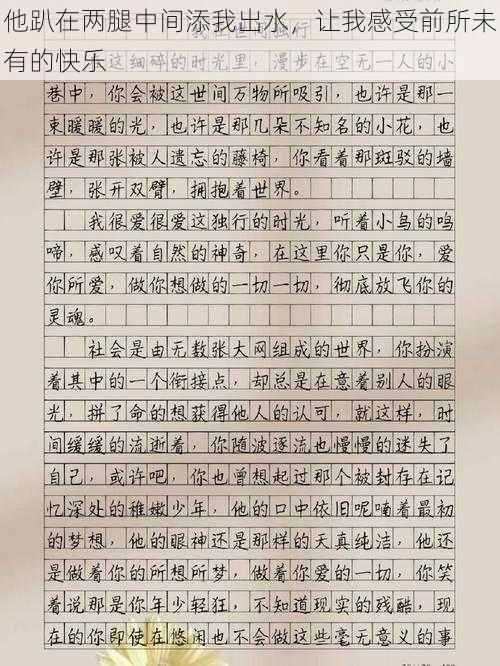 他趴在两腿中间添我出水，让我感受前所未
有的快乐
我在世间独行
在这细碎的时光里，漫步在空无一人的小
巷中，你会被这世间万物所吸引，也许是那一
束暖暖的光，也许是那几朵不知名的小花，也
许是那张被人遗忘的藤椅，你看着那斑驳的墙
壁，张开双臂，拥抱着世界。
我很爱很爱这独行的时光，听着小鸟的鸣
啼，感叹着自然的神奇，在这里你只是你，爱
你所爱，做你想做的一切一切，彻底放飞你的
灵魂。
社会是由无数张大网组成的世界，你扮演
着其中的一个衔接点，却总是在意着别人的眼
光，拼了命的想获得他人的认可，就这样，时
间缓缓的流逝着，你随波逐流也慢慢的迷失了
自己，或许吧，你也曾想起过那个被封存在记
忆深处的稚嫩少年，他的口中依旧呢喃着最初
的梦想，他的眼神还是那样的天真纯洁，他还
是做着你的所想所梦，做着你爱的一切，你笑
着说那是你年少轻狂，不知道现实的残酷，现
在的你即使在悠闲也不会做这些毫无意义的事